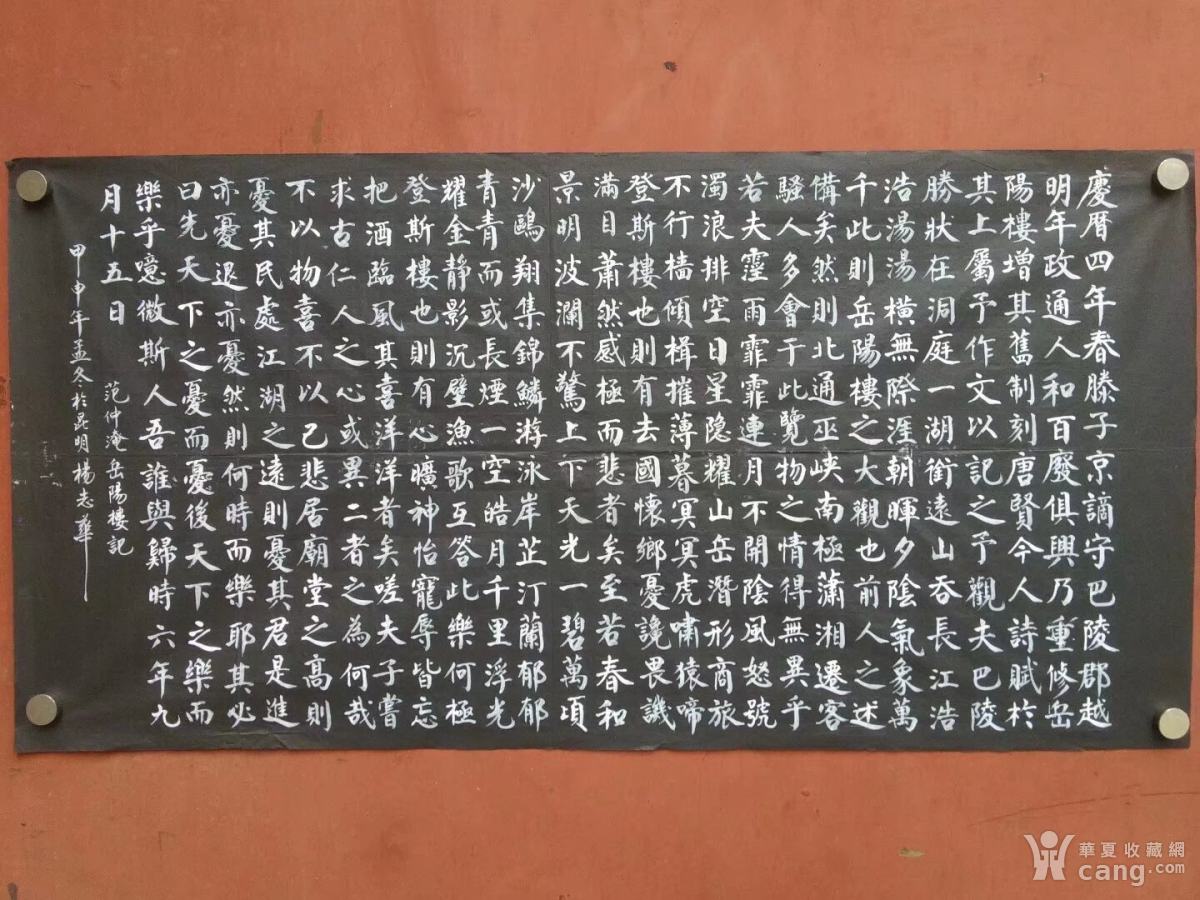 慶暦四年春滕子京謫守巴陵郡越
明年政通人和百廢俱興乃重修岳
陽樓增其舊制刻唐賢今人詩賦於
其上屬予作文以記之予觀夫巴陵
勝狀在洞庭一湖銜遠山吞長江浩
浩湯湯橫無際涯朝暉夕陰氣象萬
千此則岳陽樓之大觀也前人之述
備矣然則北通巫峽南極瀟湘遷客
騷人多會于此覽物之情得無異乎
若夫霪雨霏霏連月不開陰風怒號
濁浪排空日星隐耀山岳潛形商旅
不行檣傾楫摧薄暮冥冥虎嘯猿啼
登斯樓也則有去國懷鄉憂讒畏譏
滿目蕭然感極而悲者矣至若春和
景明波瀾不驚上下天光一碧萬頃
沙鷗翔集錦鱗游泳岸芷汀蘭郁郁
青青而或長煙一空皓月千里浮光
耀金靜影沉璧漁歌互答此樂何極
登斯樓也則有心曠神怡寵辱皆忘
把酒臨風其喜洋洋者矣嗟夫予嘗
求古仁人之心或異二者之為何哉
不以物喜不以己悲居廟堂之高則
憂其民處江湖之遠則憂其君是進
亦憂退亦憂然則何時而樂耶其必
曰先天下之憂而憂後天下之樂而
樂乎噫微斯人吾誰與歸時六年九
月十五日
范仲淹岳陽樓記
甲申年孟冬於昆明楊志華
華夏收藏網
cang.com